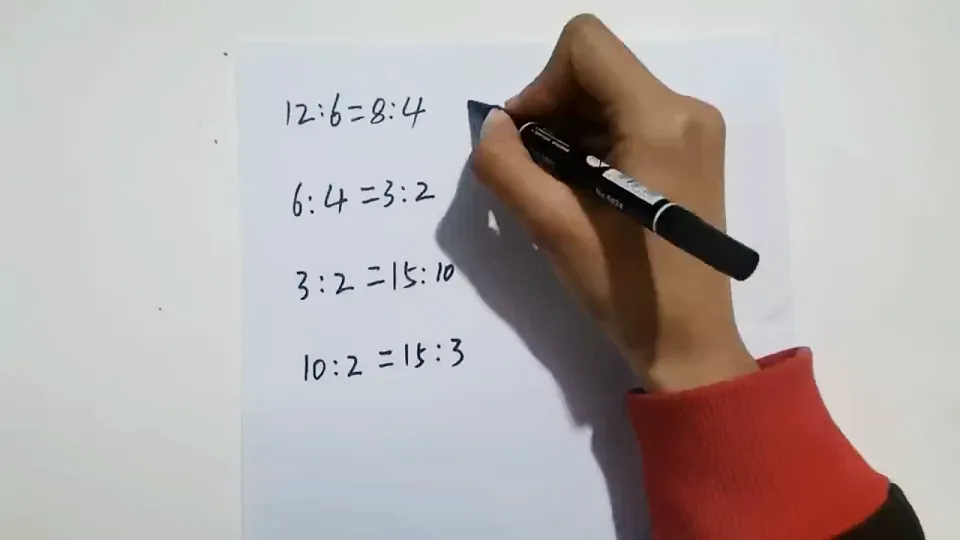 12:6=8:4
6:4=3:2
3:2=15:10
10:2=15:3